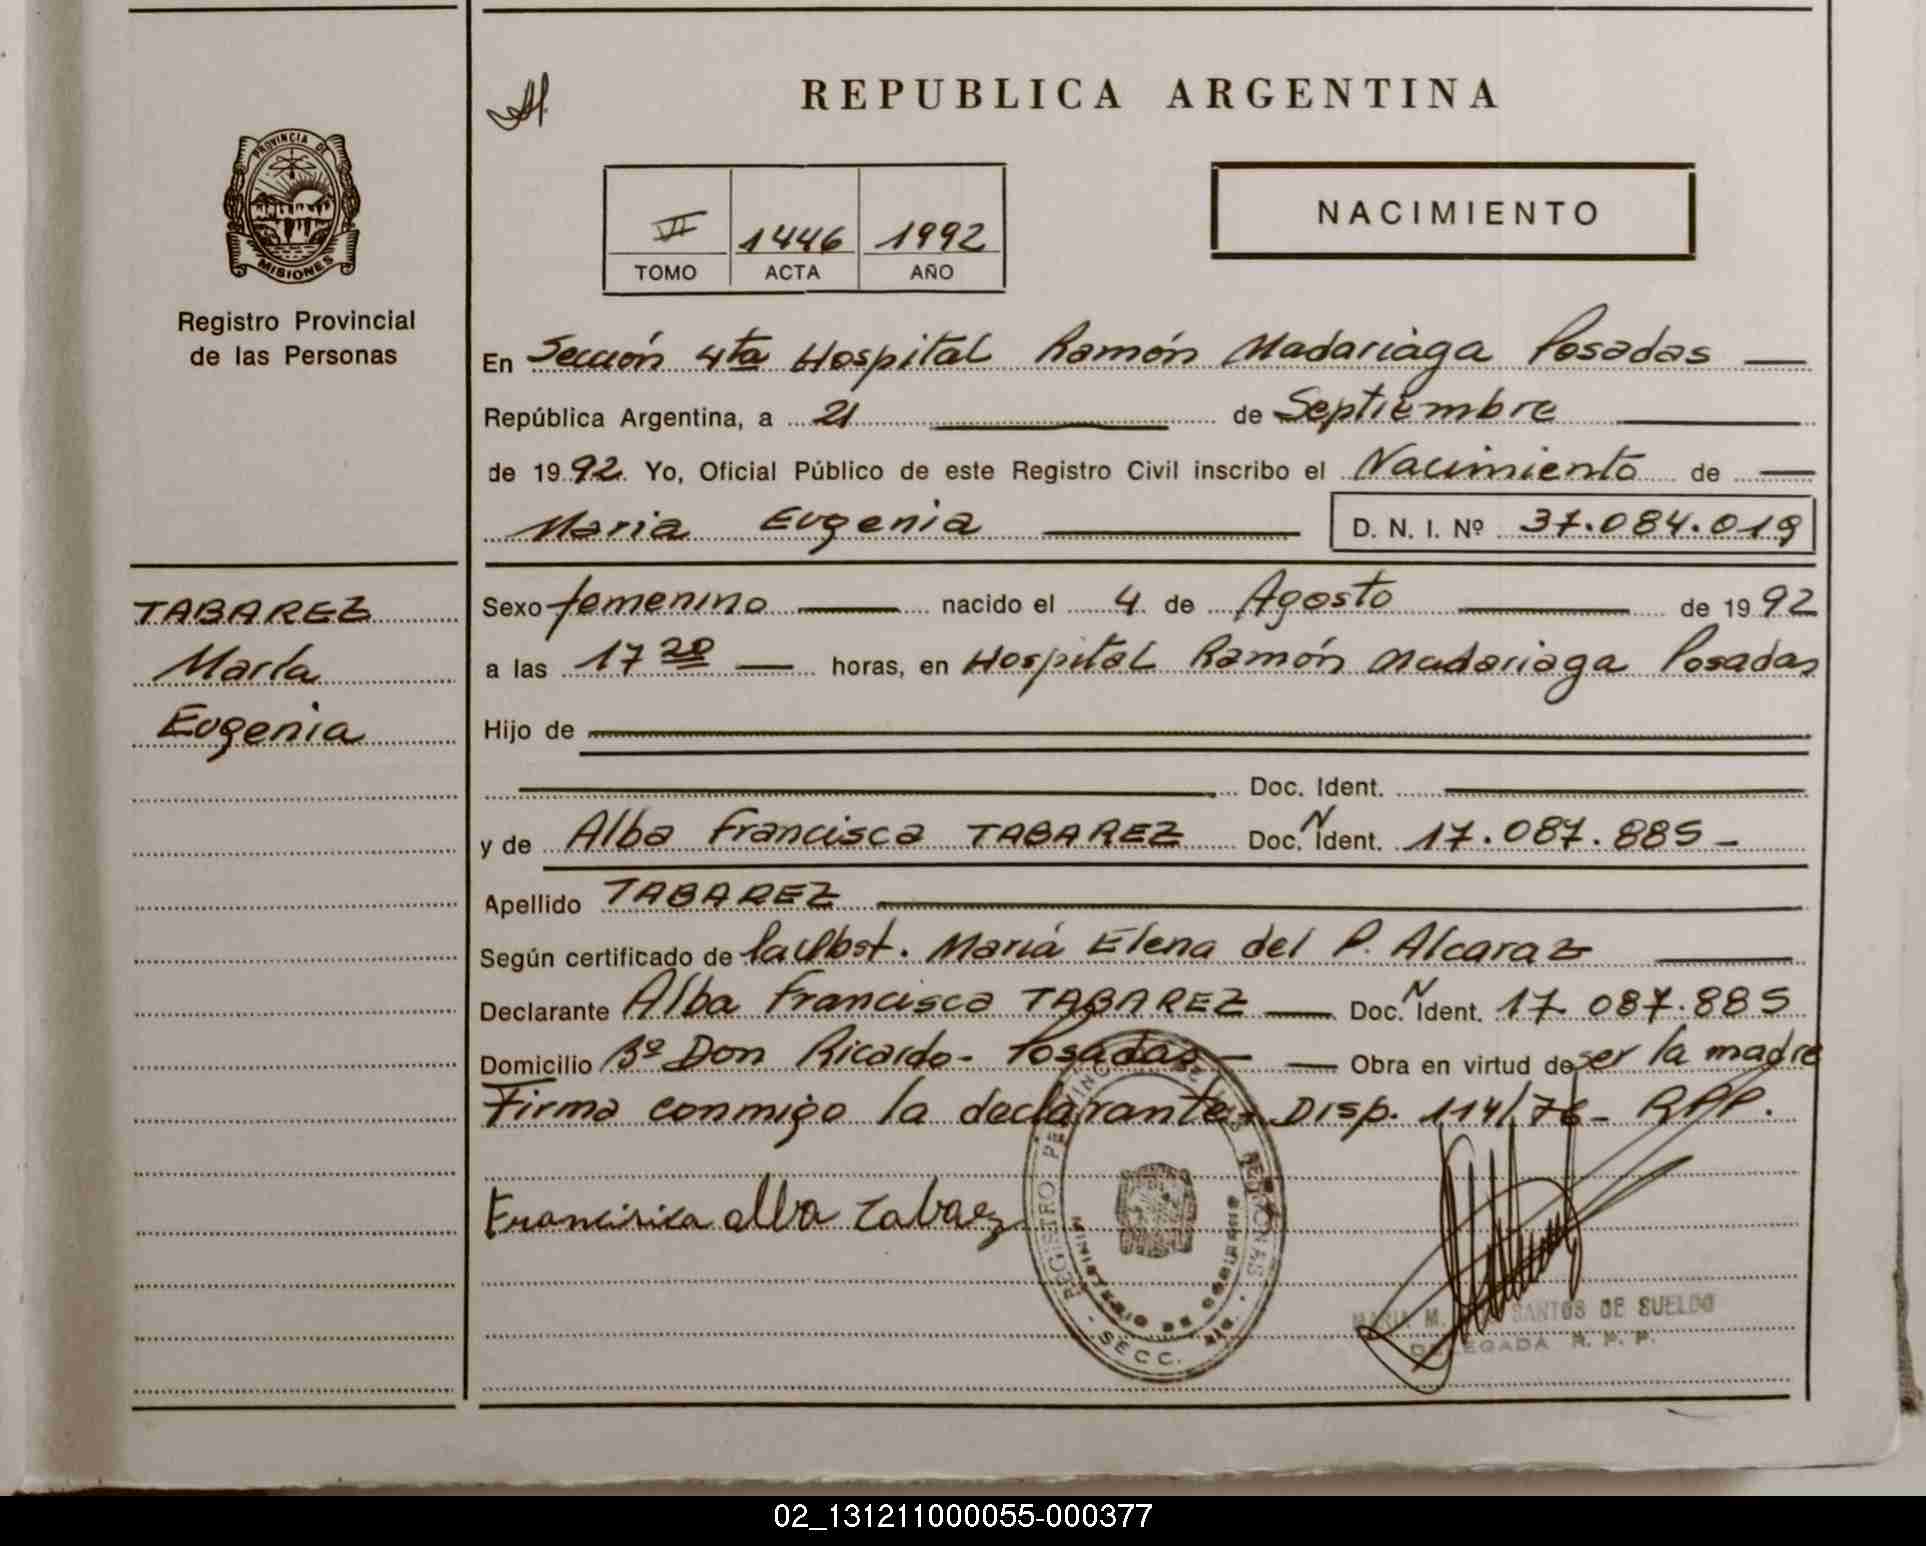 REPUBLICA ARGENTINA
PROVINCIA DE
MISIONES
Registro Provincial
de las Personas
VI 1446 1992
TOMO ACTA AÑO
NACIMIENTO
En Sección 4ta Hospital Ramón Madariaga Posadas
República Argentina, a 21 de Septiembre
de 1992 Yo, Oficial Público de este Registro Civil inscribo el Nacimiento de
Maria Eugenia D. N. I. Nº 37.084.019
TABAREZ
María
Eugenia
Sexo femenino nacido el 4 de Agosto de 1992
a las 17 20 horas, en Hospital Ramón Madariaga Posadas
Hijo de
Doc. Ident.
y de Alba Francisca TABAREZ Doc. N Ident. 17.087.885
Apellido TABAREZ
Según certificado de la Obst. María Elena del P. Alcaraz
Declarante Alba Francisca TABAREZ Doc. N Ident. 17 087.885
Domicilio Bº Don Ricardo - Posadas - Obra en virtud de ser la madre
Firma conmigo la declarante. Disp. 114/76 - RPP.
Francisica alba tabaez
REGISTRO PROVINCIAL DE LAS PERSONAS
MINISTERIO DE GOBIERNO
- SECC. 4ta. -
MARIA M. SANTOS DE SUELDO
DELEGADA R. P. P.
02_131211000055-000377